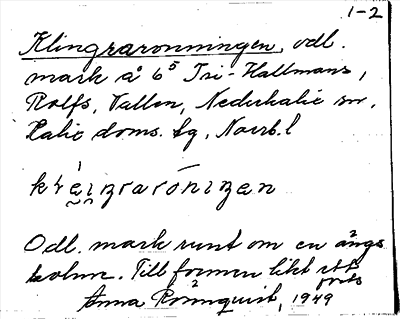 1-2
Klingraronningen, odl.
mark å 6⁵ Tri-Hallmans,
Rolfs, Vallen, Nederkalix sn.
Kalix doms. tg, Norrb. l
Odl. mark runt om en ängs
holme. Till formen likt ett
Anna Rönnquist, 1949